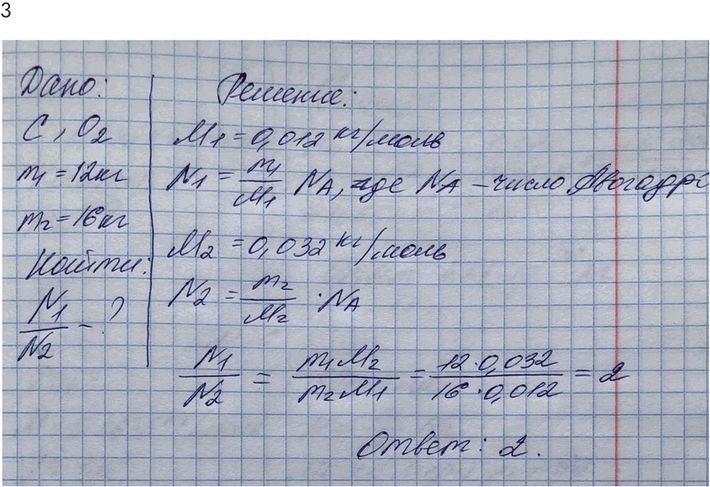 3
Дано:
C, O₂
m₁ = 12кг
m₂ = 16кг
Найти:
N₁/N₂ - ?
Решение:
M₁ = 0,012 кг/моль
N₁ = m₁/M₁ N_A, где N_A – число Авогадро
M₂ = 0,032 кг/моль
N₂ = m₂/M₂ · N_A
N₁/N₂ = m₁M₂/m₂M₁ = 12·0,032/16·0,012 = 2
Ответ: 2.